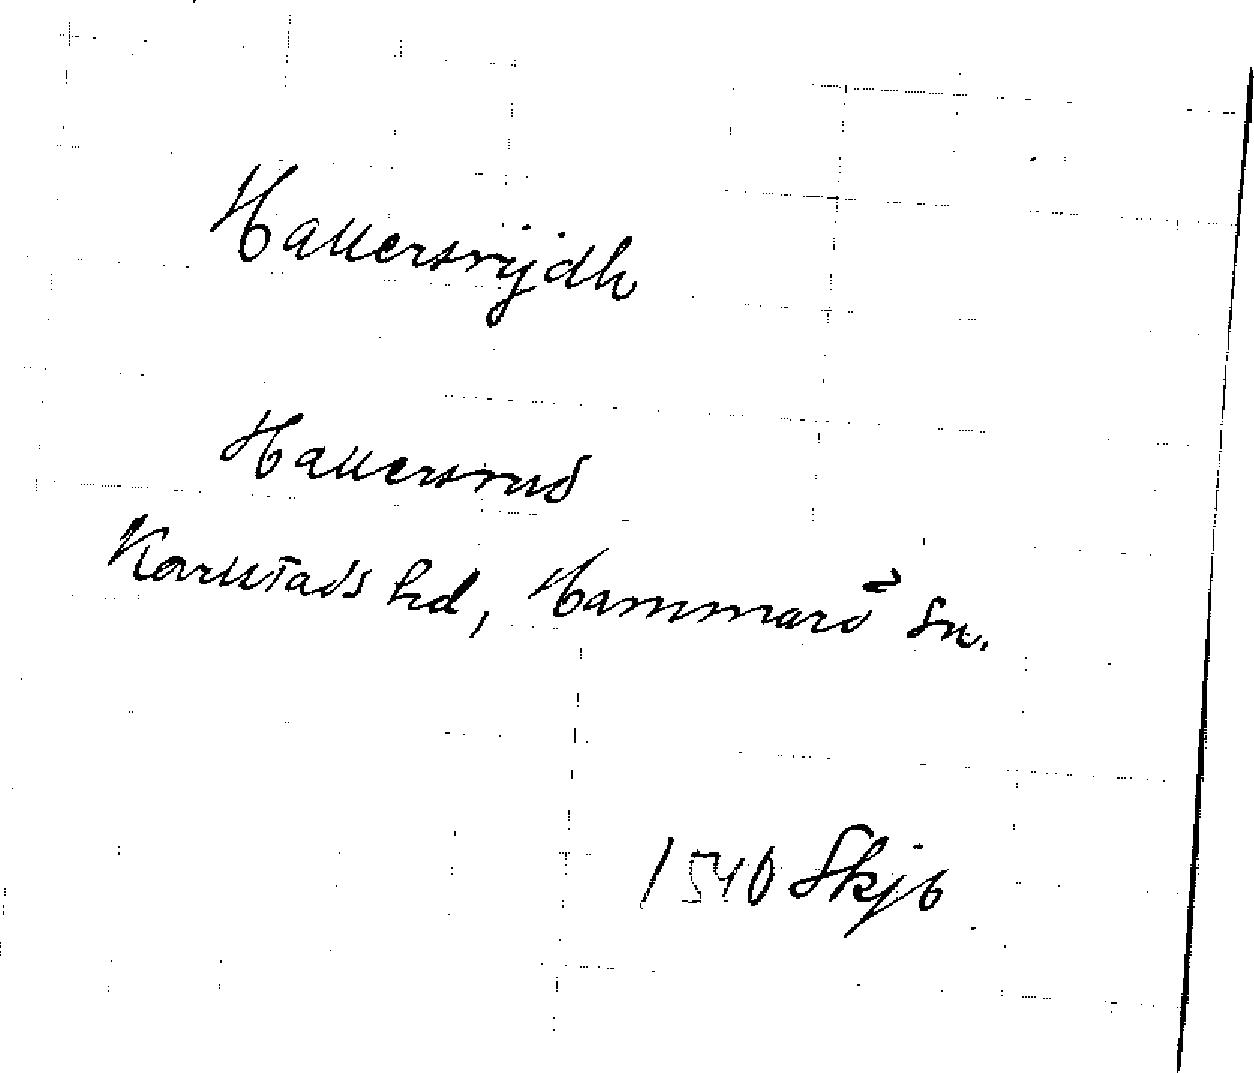 Hallersrijdh
Hallersrud
Karlstads hd, Hammarö sn.
1540 Skjb